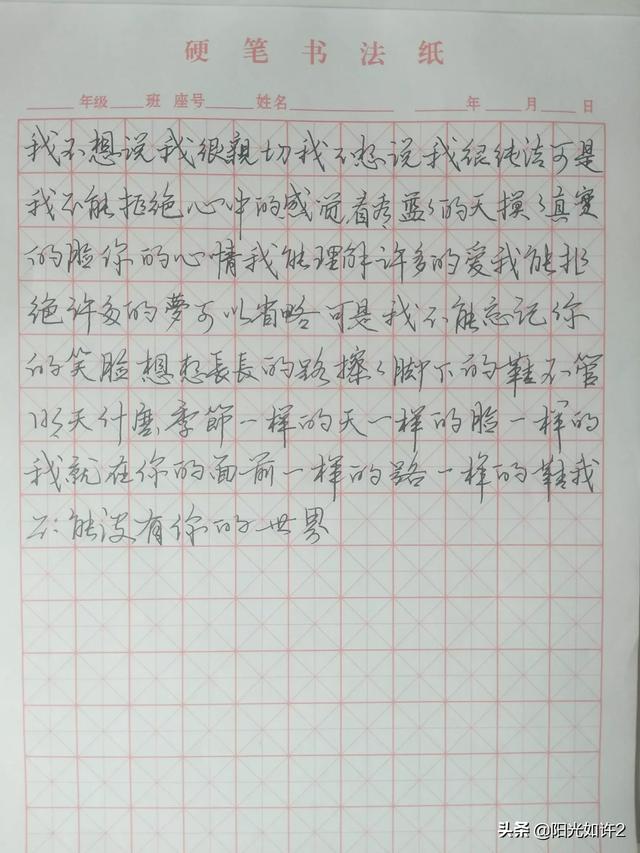 硬笔书法纸
年级 班 座号 姓名 年 月 日
我不想说我很親切我不想说我很纯洁可是
我不能拒绝心中的感觉看看蓝々的天摸々真实
的脸你的心情我能理解许多的爱我能拒
绝许多的夢可以省略可是我不能忘记你
的笑脸想想長長的路擦々脚下的鞋不管
明天什麽季節一样的天一样的脸一样的
我就在你的面前一样的路一样的鞋我
不能没有你的世界
头条 @阳光如许2